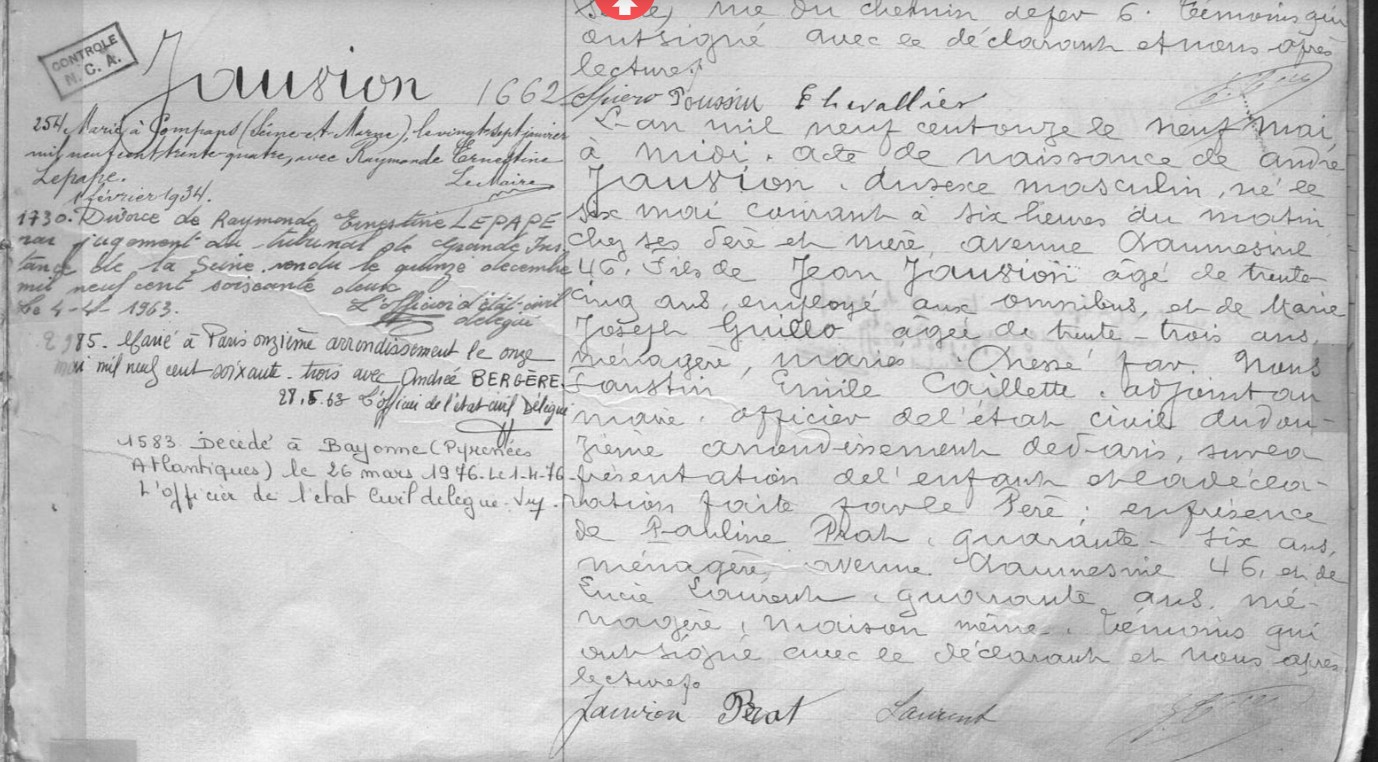 CONTROLE
N. C. A.
Jauvion 1662
254. Marié à Compans (Seine et Marne), le vingt sept janvier
mil neuf cent trente quatre, avec Raymonde Ernestine
Lepape. Le Maire
1 février 1934.
1730. Divorce de Raymonde Ernestine LEPAPE
par jugement du tribunal de Grande Ins-
tance de la Seine rendu le quinze decembre
mil neuf cent soixante deux
Le 4-4-1963. L'officier d'état-civil
délégué
2985. Marié à Paris onzième arrondissement le onze
mai mil neuf cent soixante-trois avec Andrée BERGÈRE.
28.5.63 L'officier de l'état-civil Délégué
1583 Décédé à Bayonne (Pyrénées
Atlantiques) le 26 mars 1976. Le 1-4-76
L'officier de l'état civil délégué.
rue du chemin de fer 6. Témoins qui
ont signé avec le déclarant et nous après
lecture.
Spiero Poussin Chevallier
L'an mil neuf cent onze le neuf mai
à midi. acte de naissance de André
Jauvion, du sexe masculin, né le
six mai courant à six heures du matin
chez ses Père et mère, avenue Daumesnil
46. Fils de Jean Jauvion âgé de trente
cinq ans, employé aux omnibus, et de Marie
Joseph Guillo âgée de trente-trois ans,
ménagère, mariés. Dressé par Nous
Faustin Emile Caillette, adjoint au
maire, officier de l'état civil du dou-
zième arrondissement de Paris, sur la
présentation de l'enfant et la décla-
ration faite par le Père; en présence
de Pauline Prat, quarante-six ans,
ménagère, avenue Daumesnil 46, et de
Lucie Laurent, quarante ans, mé-
nagère, maison même. Témoins qui
ont signé avec le déclarant et nous après
lecture.
Jauvion Prat Laurent